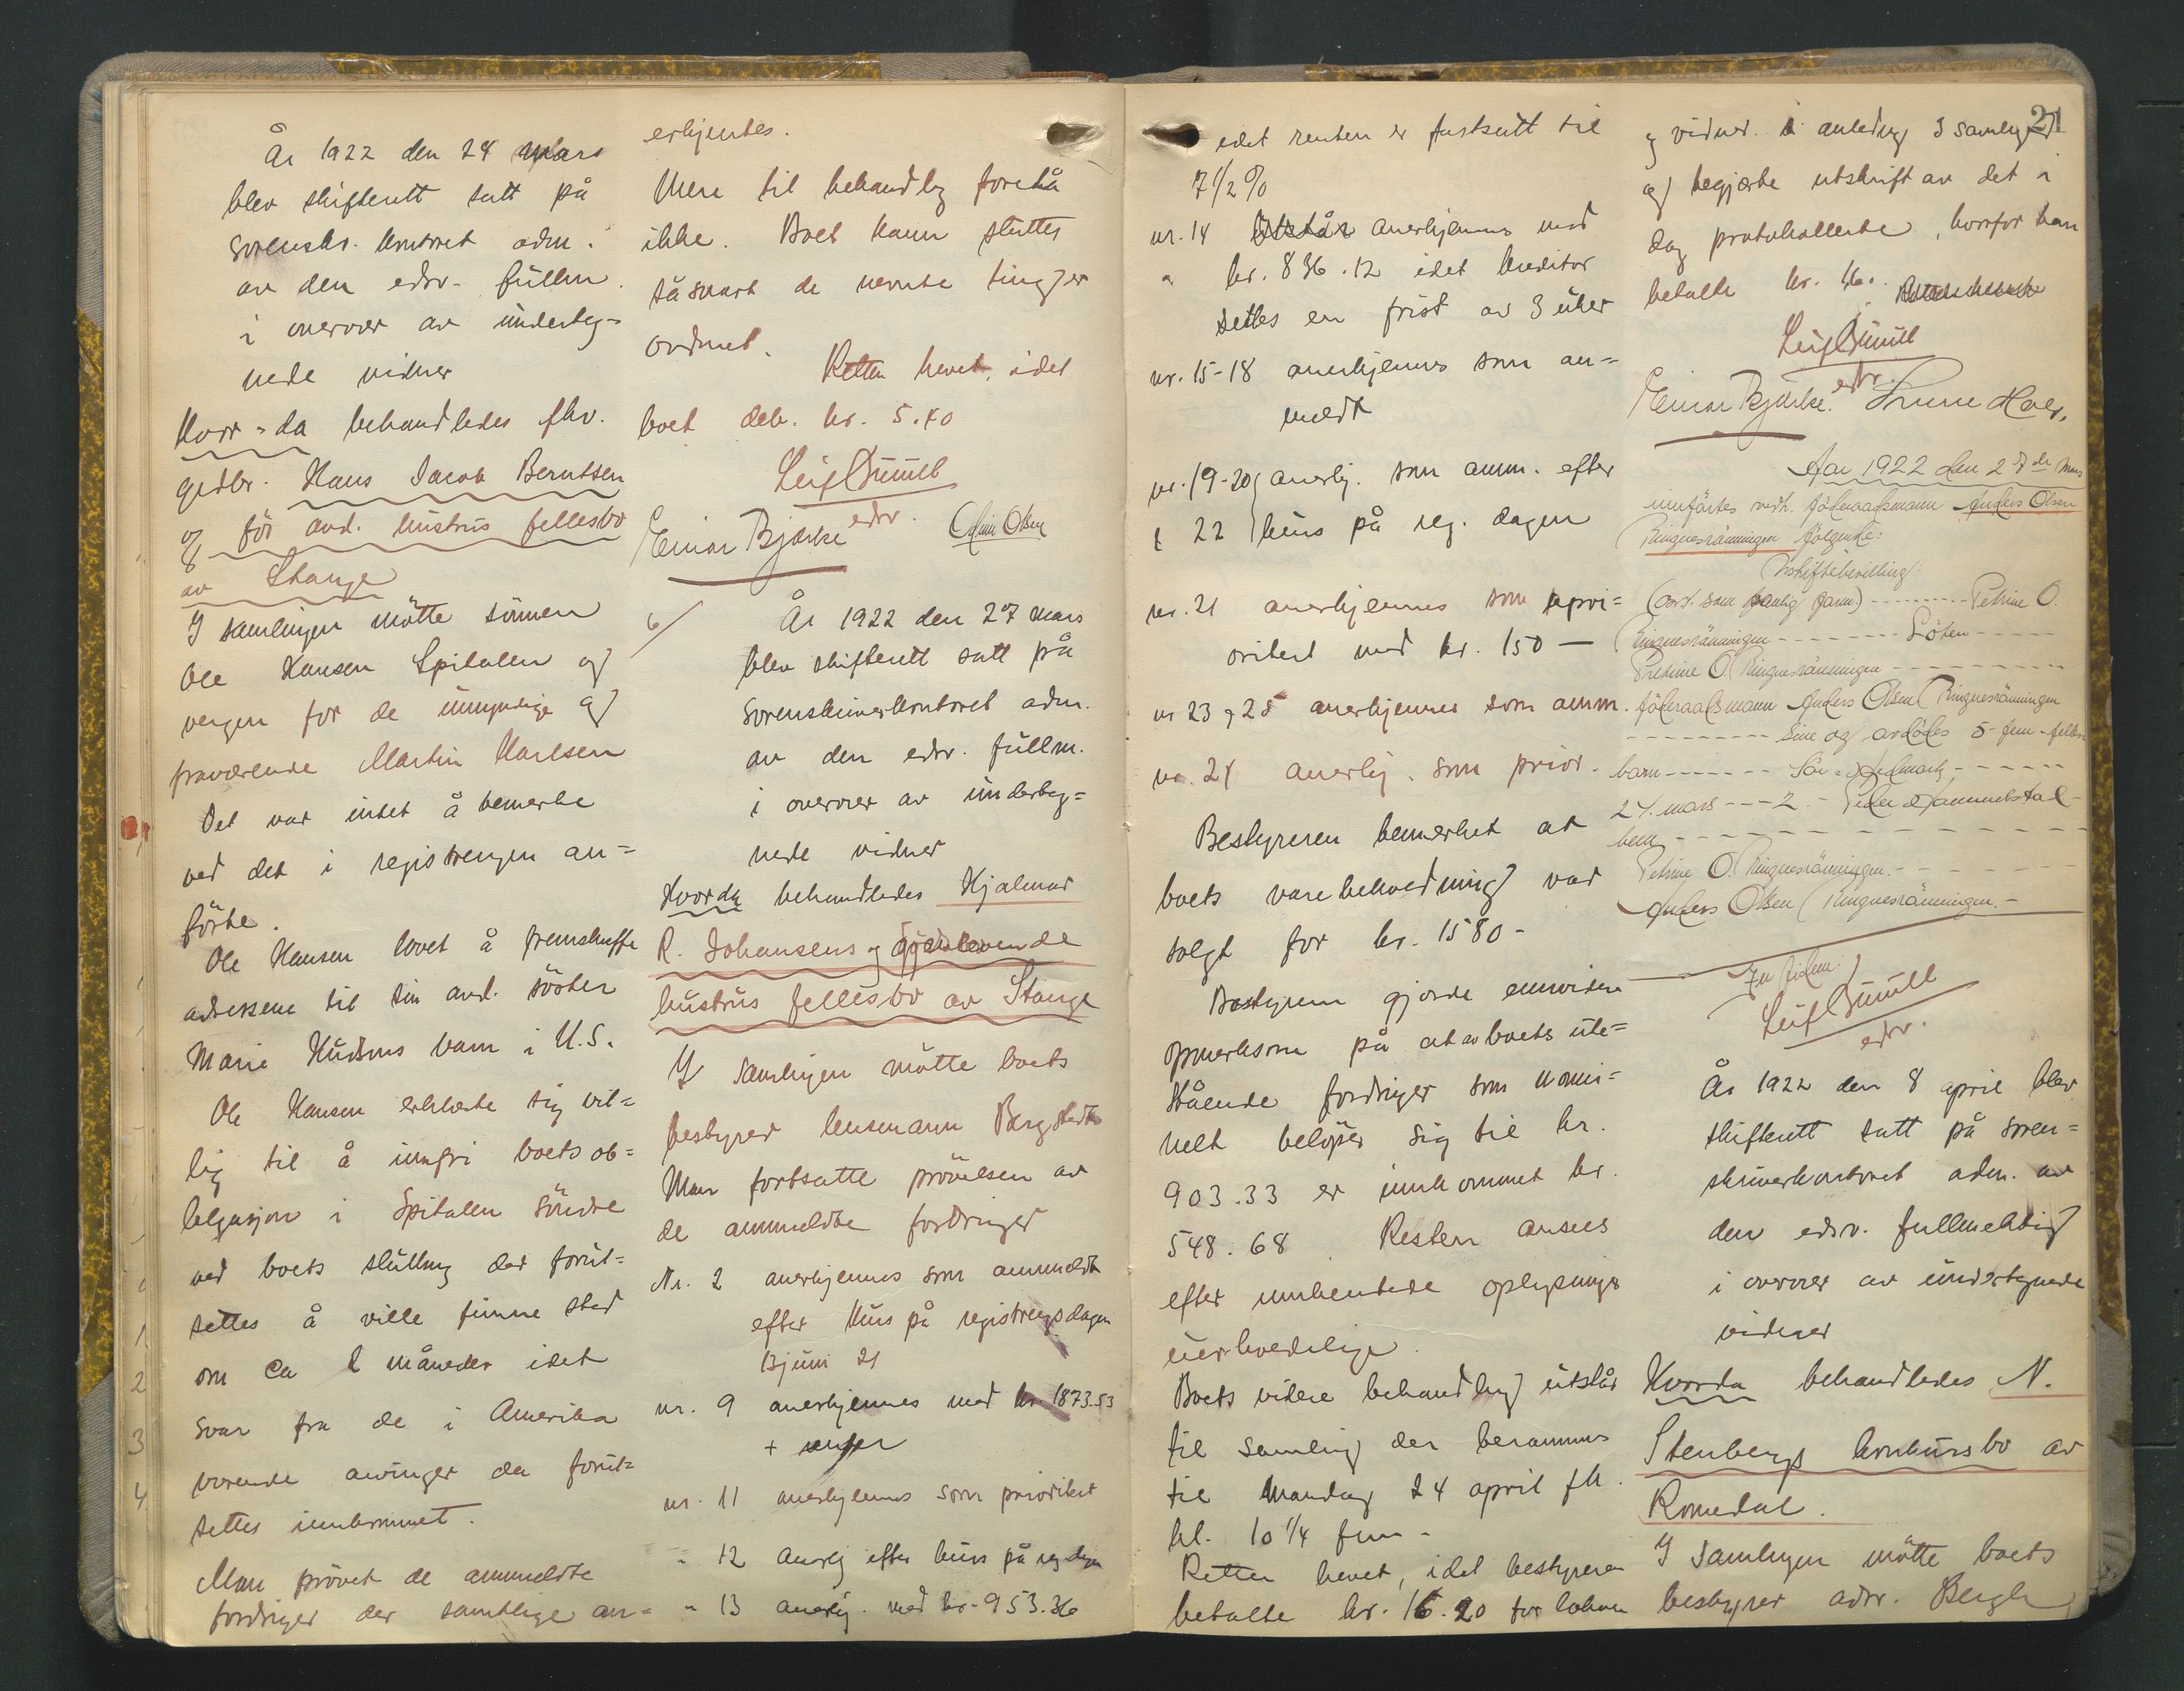 År 1922 den 24 mars
blev skifterett satt på
sorenskr. kontoret adm.
av den edsv. fullm.
i overvær av underteg=
nede vidner
Hvor=da behandledes fhv.
gdbr. Hans Jacob Berntsen
og før avd. hustrus fellesbo
av Stange
I samlingen møtte sønnen
Ole Hansen Spitalen og
vergen for de umyndige og
fraværende Martin Karlsen
Det var intet å bemerke
ved det i registreringen an=
førte.
Ole Hansen lovet å fremskaffe
adressene til sin avd. søster
Marie barn i U.S.
Ole Hansen erklærte sig vil=
lig til å innfri boets ob=
ligasjon i Spitalen søndre
ved boets slutning der forut=
settes å ville finne sted
om ca 2 måneder idet
svar fra de i Amerika
værende arvinger da forut=
settes innkommet.
Man prøvet de anmeldte
fordringer der samtlige an=
erkjentes.
Mere til behandling forelå
ikke. Boet kann sluttes
såsnart de nevnte ting er
ordnet.
Retten hevet, idet
boet deb. kr. 5.40
Leif Dünell
edsv.
Einar Bjørke Olsen
6/
År 1922 den 27 mars
blev skifterett satt på
sorenskriverkontoret adm.
av den edsv. fullm.
i overvær av underteg=
nede vidner
Hvorda behandledes Hjalmar
R. Johansens og gjenlevende
hustrus fellesbo av Stange
I samlingen møtte boets
bestyrer lensmann Bergstedt
Man fortsatte prøvelsen av
de anmeldte fordringer
Nr. 2 anerkjennes som anmeldt
efter kurs på registreringsdagen
13 juni 21
nr. 9 anerkjennes med kr 1873.53
+ renter
nr. 11 anerkjennes som prioritert
" 12 anerkj efter kurs på reg dagen
" 13 anerkj. med kr. 953.36
21
idet renten er fastsatt til
7 1/2 %
nr. 14 anerkjennes med
kr. 836.12 idet kreditor
settes en frist av 3 uker
nr. 15-18 anerkjennes som an=
meldt
nr. 19-20 anerkj. som anm. efter
& 22 kurs på reg. dagen
nr. 21 anerkjennes som upri=
oritert med kr. 150 —
nr 23 og 25 anerkjennes som anm.
nr. 24 anerkj. som prior.
Bestyreren bemerket at
boets varebeholdning var
solgt for kr. 1580 -
Bestyreren gjorde ennvidere
opmerksom på at av boets ute=
stående fordringer som nomi=
nelt beløper sig til kr.
903.33 er innkommet kr.
548.68. Resten ansees
efter innhentede oplysninger
uerholdelige.
Boets videre behandling utstår
til samling der berammes
til Mandag 24 april fk.
kl. 10 1/4 fm -
Retten hevet, idet bestyreren
betalte kr. 16.20 for lokale
og vidner i anledng 3 samlinger
og begjærte utskrift av det i
dag protokollerte, hvorfor han
betalte kr. 
Leif Dünell
edsv.
Einar Bjørke.
Aar 1922 den 27de Mars
innførtes vedk. føderaadsmann Anders Olsen
Ringnesrønningen følgende:
Uskiftebevilling:
(avs. som vanlig form) Petrine O.
Ringnesrønningen Løten
Petrine O. Ringnesrønningen
føderaadsmann Anders Olsen Ringnesrønningen
sine og avdødes 5 - fem - felles
barn Sør=Hedmark
27. mars 2.
Petrine O. Ringnesrønningen.
Anders Olsen Ringnesrønningen.
In fidem:
Leif Dünell
edsv.
År 1922 den 8 april blev
skifterett satt på soren=
skriverkontoret adm. av
den edsv. fullmektig
i overvær av undertegnede
vidner
Hvorda behandledes N.
Stenbergs konkursbo av
Romedal.
I samlingen møtte boets
bestyrer adv. Bergh